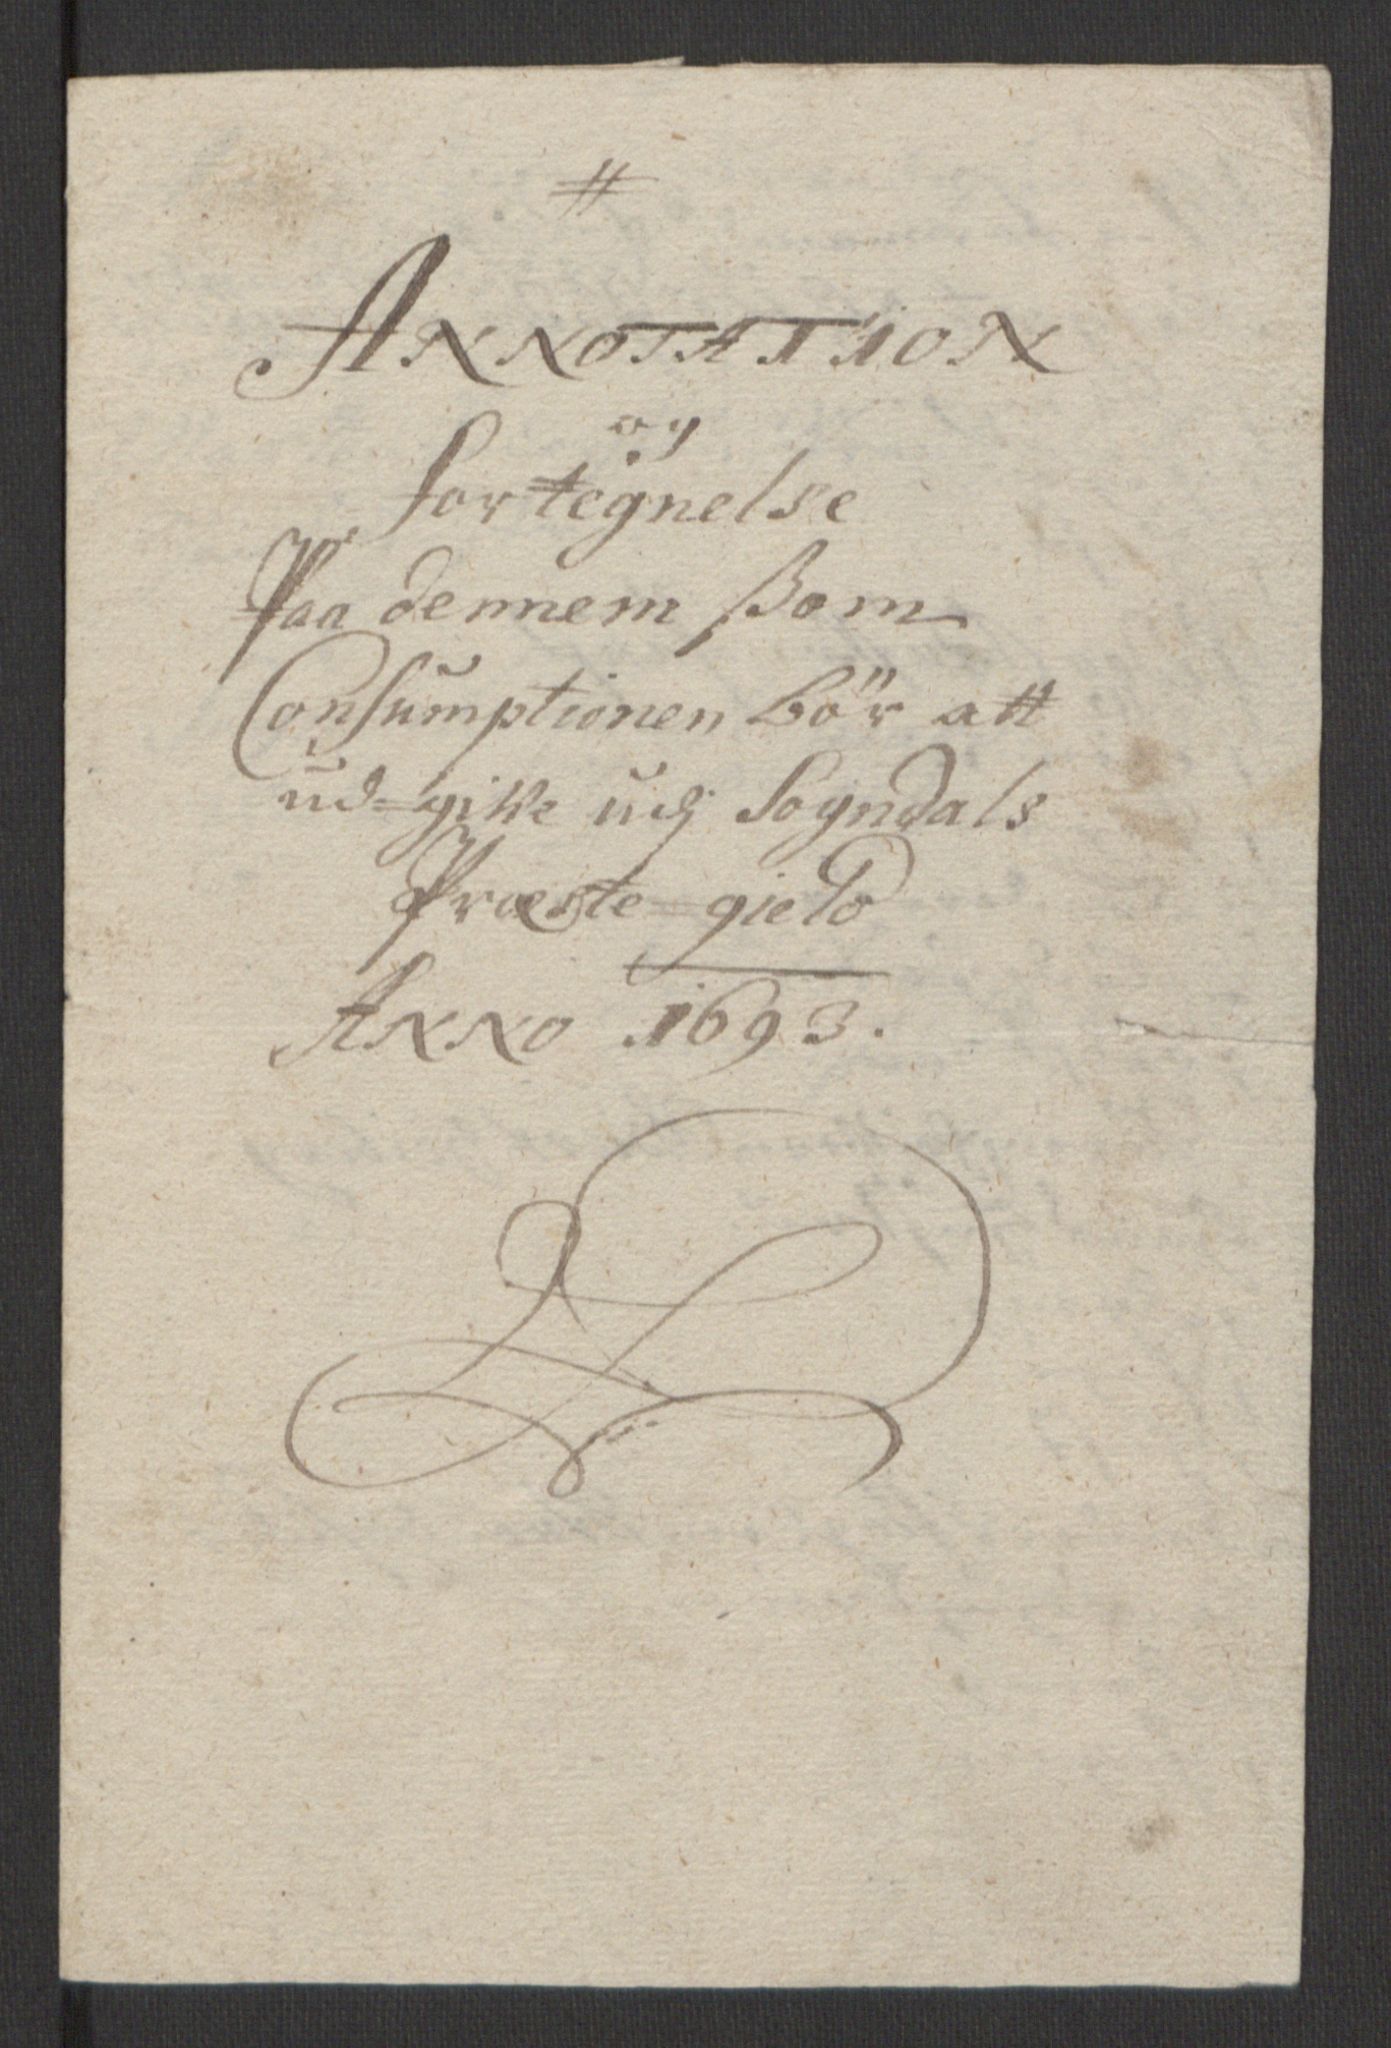 #
ANNOTATION
og
fortegnelse
Paa dennem ßom
Consumptionen bör att
ud=givve udj Sogndals
Præste=gield
ANNO 1693.